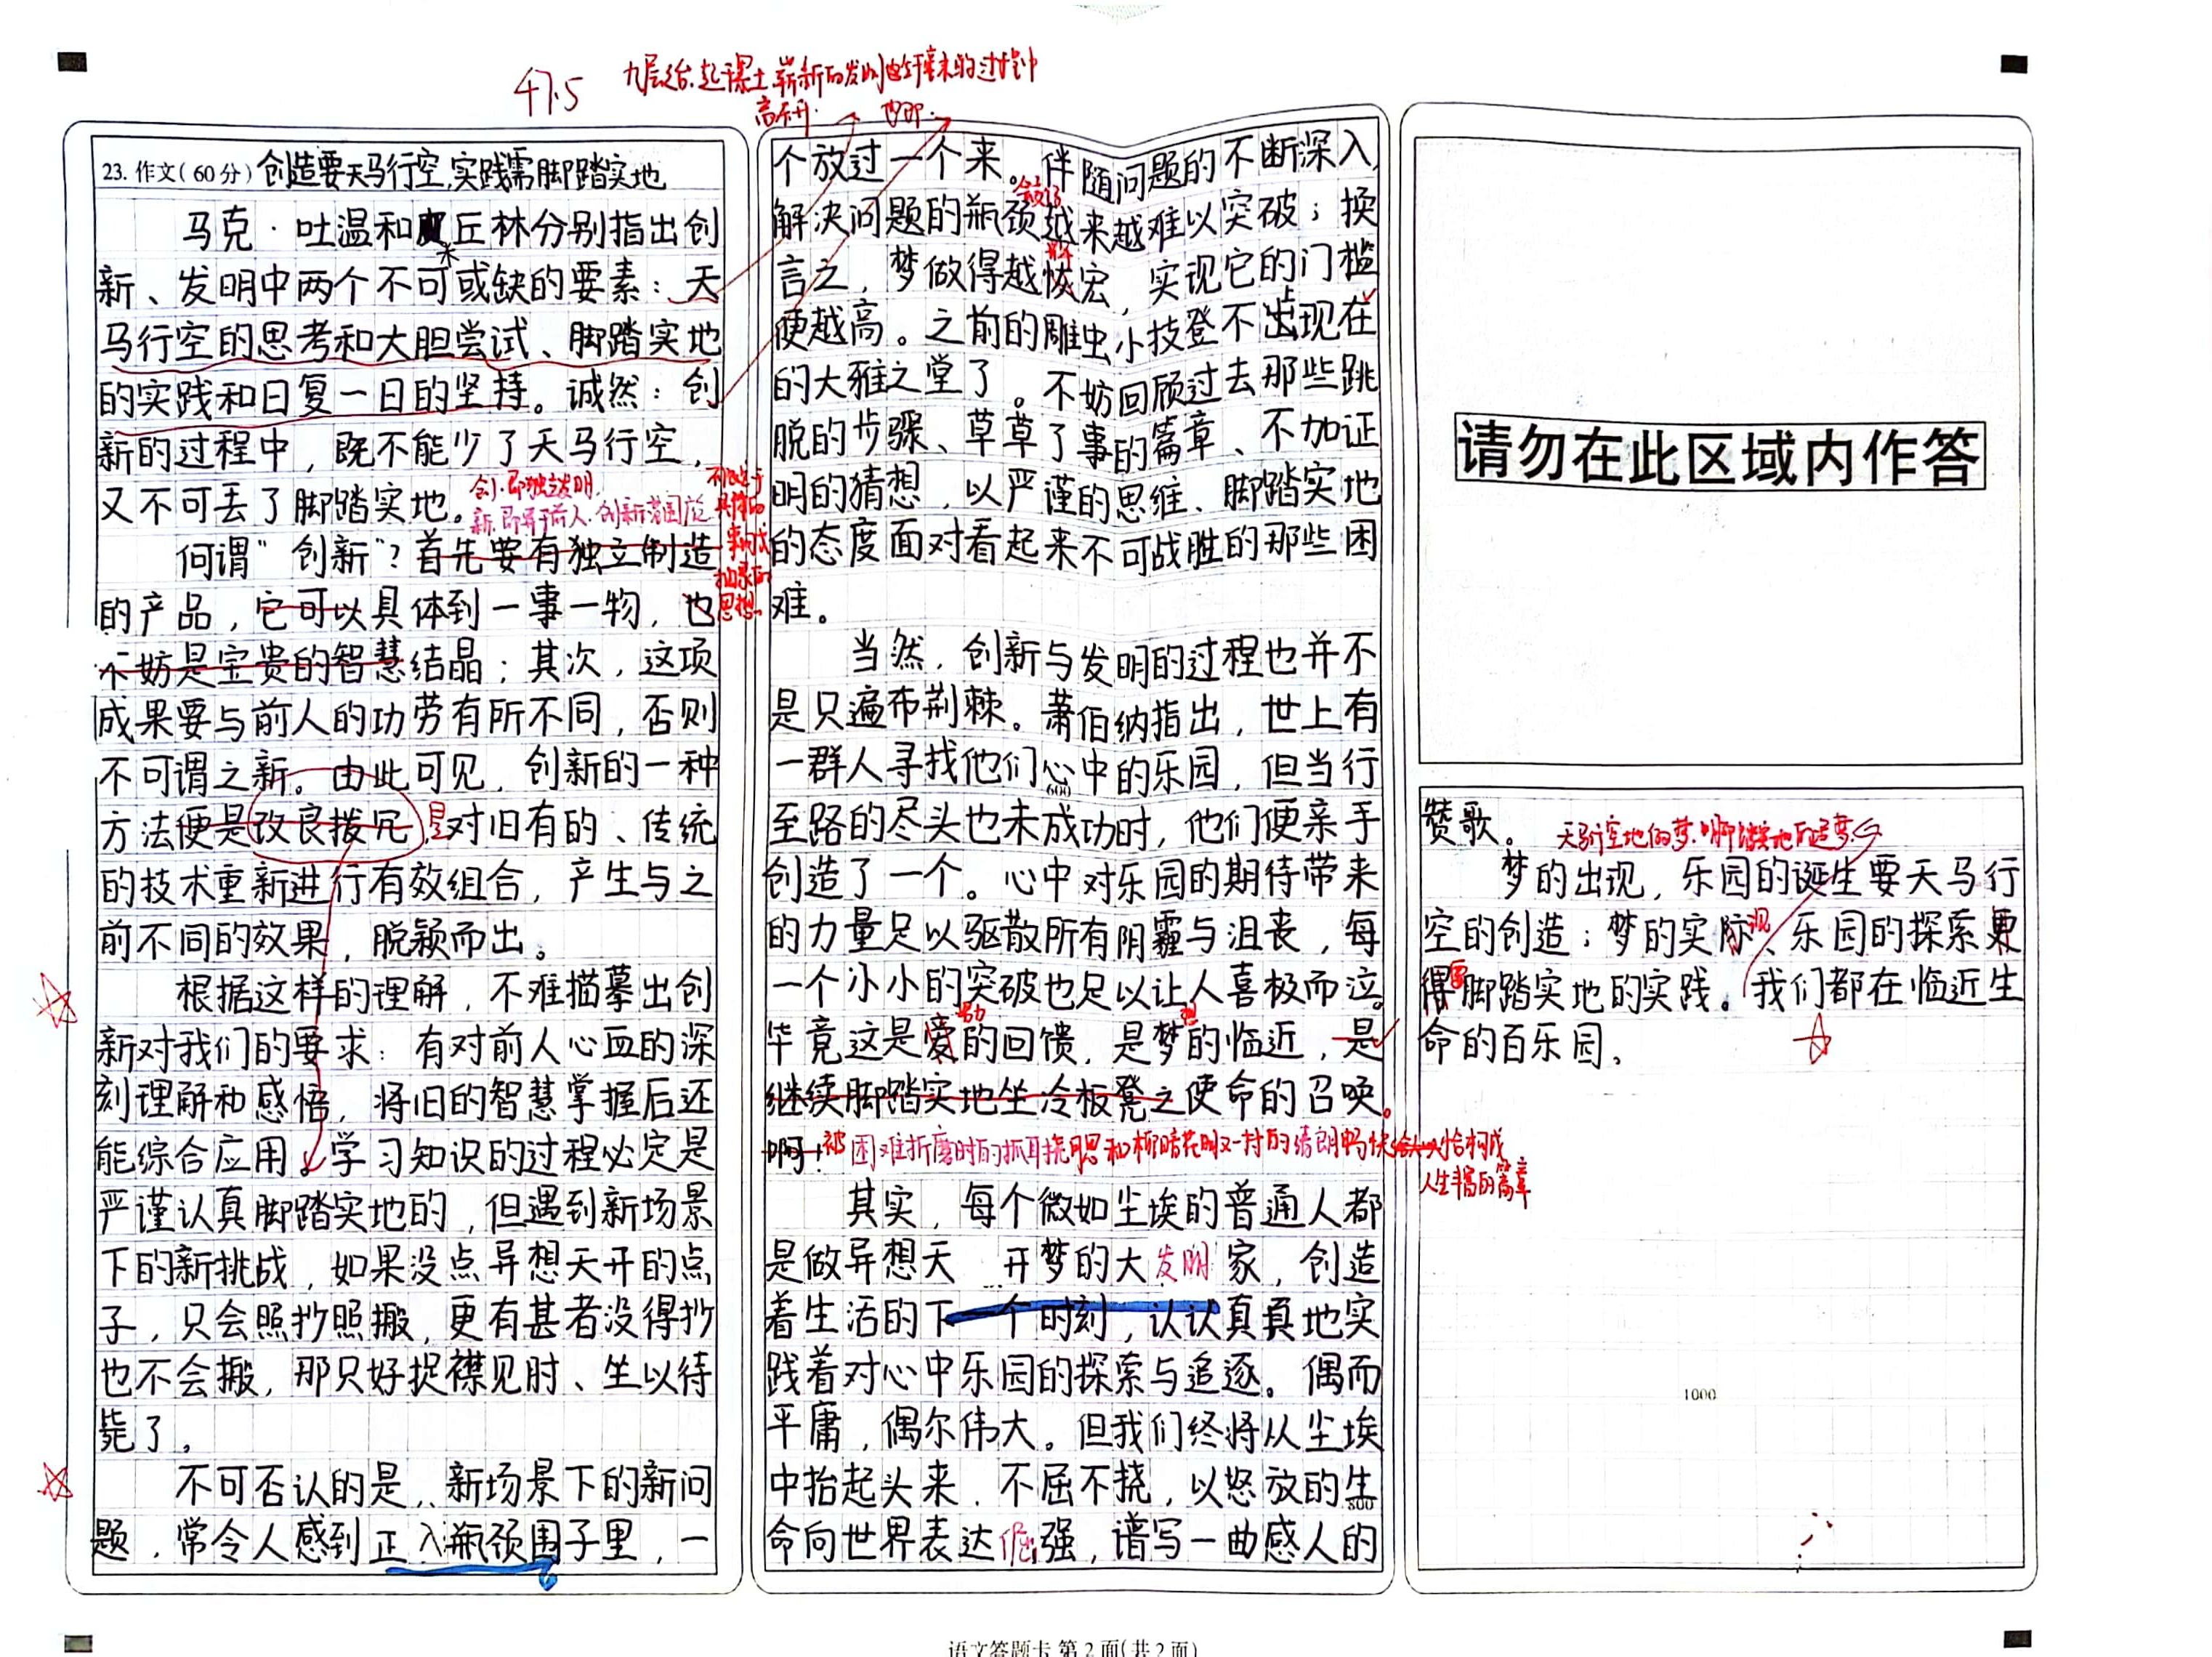 47.5
九层之台,起于累土,崭新的发明
23. 作文(60分) 创造要天马行空,实践需脚踏实地
马克·吐温和丘林分别指出创
新、发明中两个不可或缺的要素:天
马行空的思考和大胆尝试、脚踏实地
的实践和日复一日的坚持。诚然:创
新的过程中,既不能少了天马行空,
又不可丢了脚踏实地。
创,即独立发明,
新,即异于前人,创新范围广泛
何谓“创新”?首先要有独立制造
的产品,它可以具体到一事一物,也
不妨是宝贵的智慧结晶;其次,这项
成果要与前人的功劳有所不同,否则
不可谓之新。由此可见,创新的一种
方法便是改良拨冗,是对旧有的、传统
的技术重新进行有效组合,产生与之
前不同的效果,脱颖而出。
根据这样的理解,不难描摹出创
新对我们的要求:有对前人心血的深
刻理解和感悟,将旧的智慧掌握后还
能综合应用。学习知识的过程必定是
严谨认真脚踏实地的,但遇到新场景
下的新挑战,如果没点异想天开的点
子,只会照抄照搬,更有甚者没得抄
也不会搬,那只好捉襟见肘、坐以待
毙了。
不可否认的是,新场景下的新问
题,常令人感到正入瓶颈围子里,一
个放过一个来。伴随问题的不断深入,
解决问题的瓶颈越来越难以突破;换
言之,梦做得越恢宏,实现它的门槛
便越高。之前的雕虫小技登不上现在
的大雅之堂了。不妨回顾过去那些跳
脱的步骤、草草了事的篇章、不加证
明的猜想,以严谨的思维、脚踏实地
的态度面对看起来不可战胜的那些困
难。
当然,创新与发明的过程也并不
是只遍布荆棘。萧伯纳指出,世上有
一群人寻找他们心中的乐园,但当行
600
至路的尽头也未成功时,他们便亲手
创造了一个。心中对乐园的期待带来
的力量足以驱散所有阴霾与沮丧,每
一个小小的突破也足以让人喜极而泣。
毕竟这是爱的回馈,是梦的临近,是
继续脚踏实地坐冷板凳之使命的召唤。
啊!被困难折磨时的抓耳挠思和柳暗花明又一村的清朗畅快恰构成
人生丰富的篇章
其实,每个微如尘埃的普通人都
是做异想天开梦的大发明家,创造
着生活的下一个时刻,认认真真地实
践着对心中乐园的探索与追逐。偶而
平庸,偶尔伟大。但我们终将从尘埃
中抬起头来,不屈不挠,以怒放的生
800
命向世界表达倔强,谱写一曲感人的
请勿在此区域内作答
赞歌。
天马行空地做梦,脚踏实地
梦的出现,乐园的诞生要天马行
空的创造;梦的实现、乐园的探索更
得脚踏实地的实践。我们都在临近生
命的百乐园。
1000
语文答题卡 第2面(共2面)